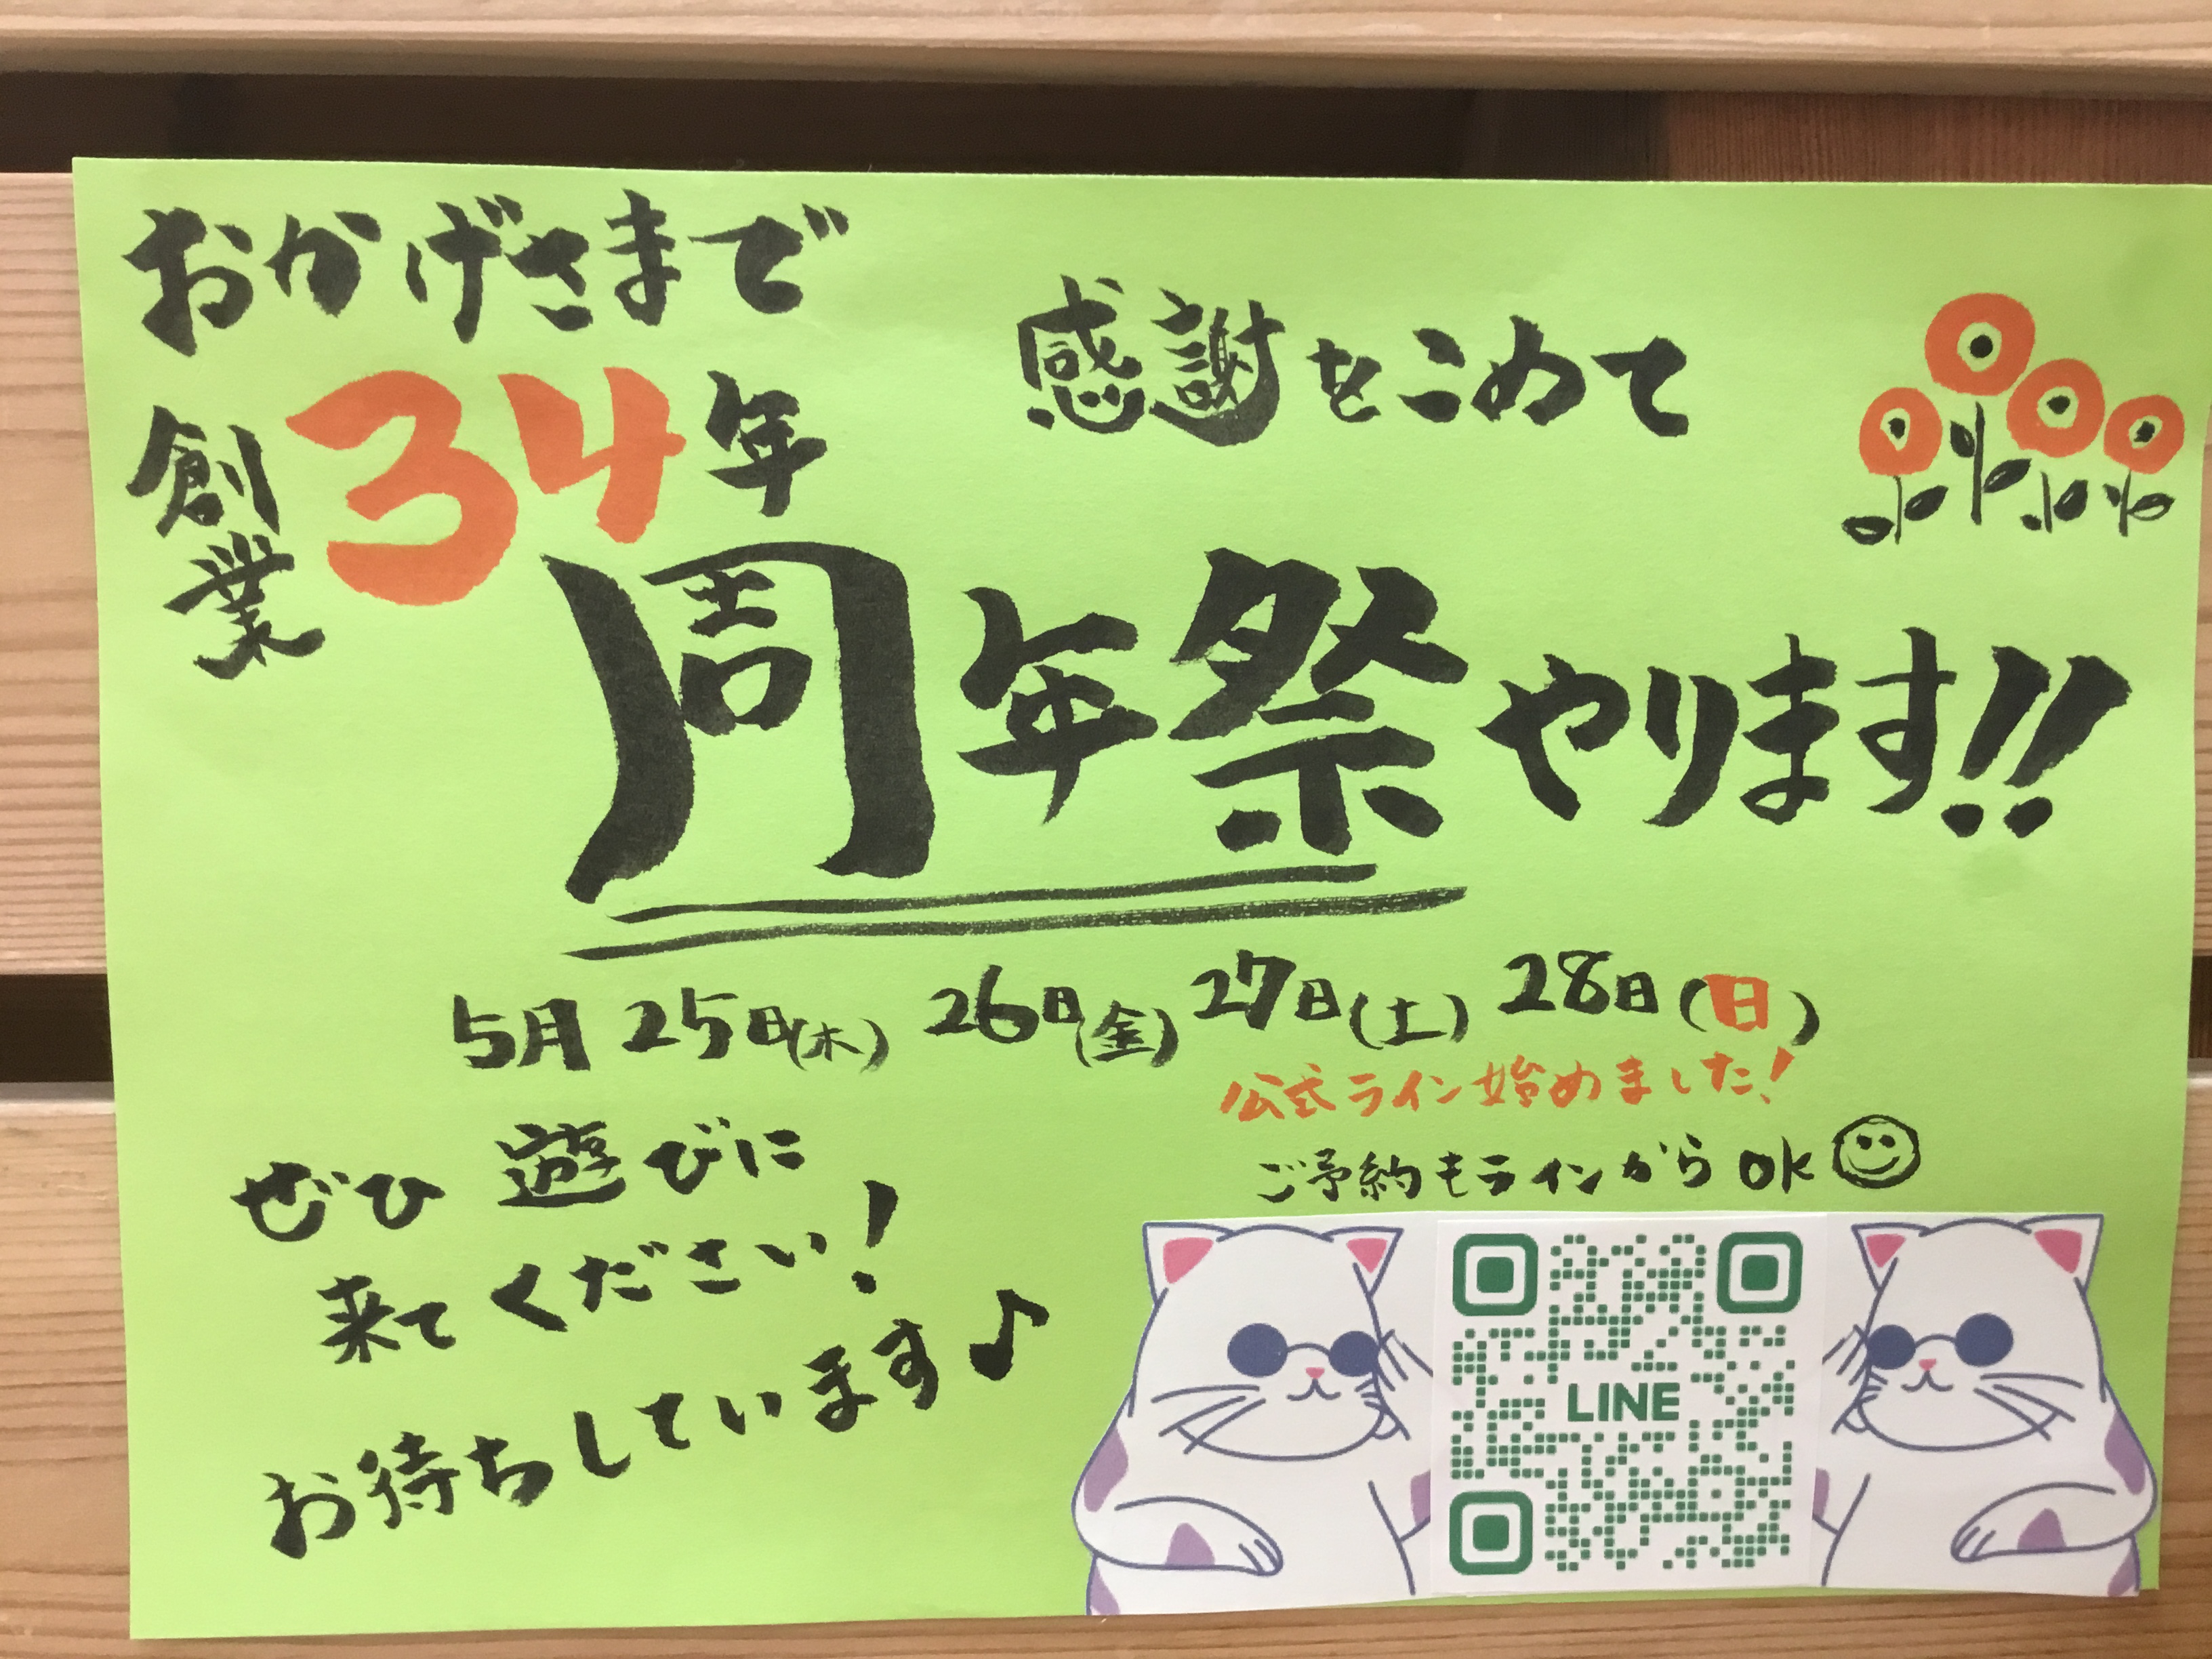 おかげさまで
創業34年
感謝をこめて
周年祭やります!!
5月25日(木) 26日(金) 27日(土) 28日(日)
公式ライン始めました!
ご予約もラインからOK
ぜひ遊びに
来てください!
お待ちしています♪
LINE